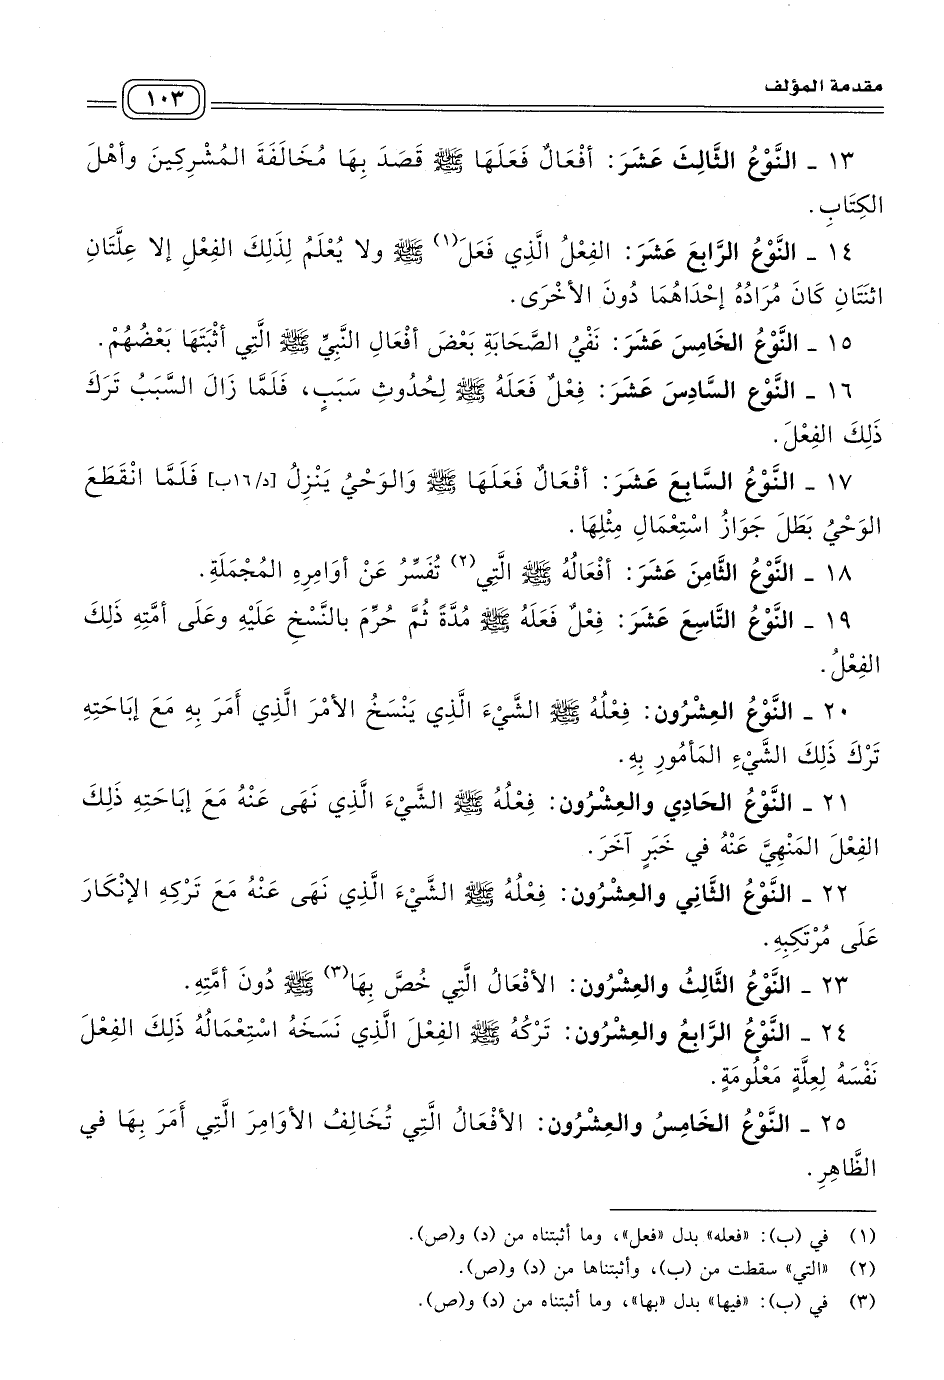 مقدمة المؤلف
١٠٣
١٣ ـ النَّوْعُ الثَّالِثَ عَشَرَ: أفْعَالٌ فَعَلَهَا ﷺ قَصَدَ بِهَا مُخَالَفَةَ المُشْرِكِينَ وأهْلَ
الكِتَابِ.
١٤ ـ النَّوْعُ الرَّابِعَ عَشَرَ: الفِعْلُ الَّذِي فَعَلَ(١) ﷺ ولا يُعْلَمُ لِذَلِكَ الفِعْلِ إلا عِلَّتَانِ
اثنَتَانِ كَانَ مُرَادُهُ إحْدَاهُمَا دُونَ الأخْرَى.
١٥ ـ النَّوْعُ الخَامِسَ عَشَرَ: نَفْيُ الصَّحَابَةِ بَعْضَ أفْعَالِ النَّبِيِّ ﷺ الَّتِي أثْبَتَهَا بَعْضُهُمْ.
١٦ ـ النَّوْع السَّادِسَ عَشَرَ: فِعْلٌ فَعَلَهُ ﷺ لِحُدُوثِ سَبَبٍ، فَلَمَّا زَالَ السَّبَبُ تَرَكَ
ذَلِكَ الفِعْلَ.
١٧ ـ النَّوْعُ السَّابِعَ عَشَرَ: أفْعَالٌ فَعَلَهَا ﷺ وَالوَحْيُ يَنْزِلُ [د/١٦ب] فَلَمَّا انْقَطَعَ
الوَحْيُ بَطَلَ جَوَازُ اسْتِعْمَالِ مِثْلِهَا.
١٨ ـ النَّوْعُ الثَّامِنَ عَشَرَ: أفْعَالُهُ ﷺ الَّتِي(٢) تُفَسِّرُ عَنْ أوَامِرِهِ المُجْمَلَةِ.
١٩ ـ النَّوْعُ التَّاسِعَ عَشَرَ: فِعْلٌ فَعَلَهُ ﷺ مُدَّةً ثُمَّ حُرِّمَ بالنَّسْخِ عَلَيْهِ وعَلَى أمَّتِهِ ذَلِكَ
الفِعْلُ.
٢٠ ـ النَّوْعُ العِشْرُون: فِعْلُهُ ﷺ الشَّيْءَ الَّذِي يَنْسَخُ الأمْرَ الَّذِي أَمَرَ بِهِ مَعَ إبَاحَتِهِ
تَرْكَ ذَلِكَ الشَّيْءِ المَأمُورِ بِهِ.
٢١ ـ النَّوْعُ الحَادِي والعِشْرُون: فِعْلُهُ ﷺ الشَّيْءَ الَّذِي نَهَى عَنْهُ مَعَ إبَاحَتِهِ ذَلِكَ
الفِعْلَ المَنْهِيَّ عَنْهُ في خَبَرٍ آخَرَ.
٢٢ ـ النَّوْعُ الثَّانِي والعِشْرُون: فِعْلُهُ ﷺ الشَّيْءَ الَّذِي نَهَى عَنْهُ مَعَ تَرْكِهِ الإنْكَارَ
عَلَى مُرْتَكِبِهِ.
٢٣ ـ النَّوْعُ الثَّالِثُ والعِشْرُون: الأفْعَالُ الَّتِي خُصَّ بِهَا(٣) ﷺ دُونَ أمَّتِهِ.
٢٤ ـ النَّوْعُ الرَّابِعُ والعِشْرُون: تَرْكُهُ ﷺ الفِعْلَ الَّذِي نَسَخَهُ اسْتِعْمَالُهُ ذَلِكَ الفِعْلَ
نَفْسَهُ لِعِلَّةٍ مَعْلُومَةٍ.
٢٥ ـ النَّوْعُ الخَامِسُ والعِشْرُون: الأفْعَالُ الَّتِي تُخَالِفُ الأوَامِرَ الَّتِي أَمَرَ بِهَا في
الظَّاهِرِ.
(١) في (ب): «فعله» بدل «فعل»، وما أثبتناه من (د) و(ص).
(٢) «التي» سقطت من (ب)، وأثبتناها من (د) و(ص).
(٣) في (ب): «فيها» بدل «بها»، وما أثبتناه من (د) و(ص).